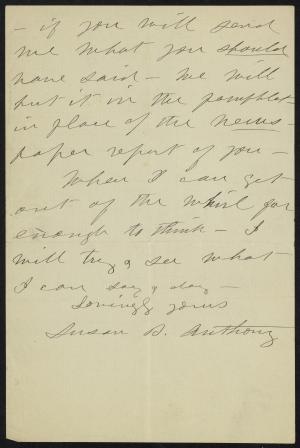 - if you will send
me what you should
have said - We will
put it in the pamphlet -
in place of the news-
paper report of you -
When I can get
out of the whirl far
enough to think - I
will try & see what
I can say & do -
Lovingly yours
Susan B. Anthony